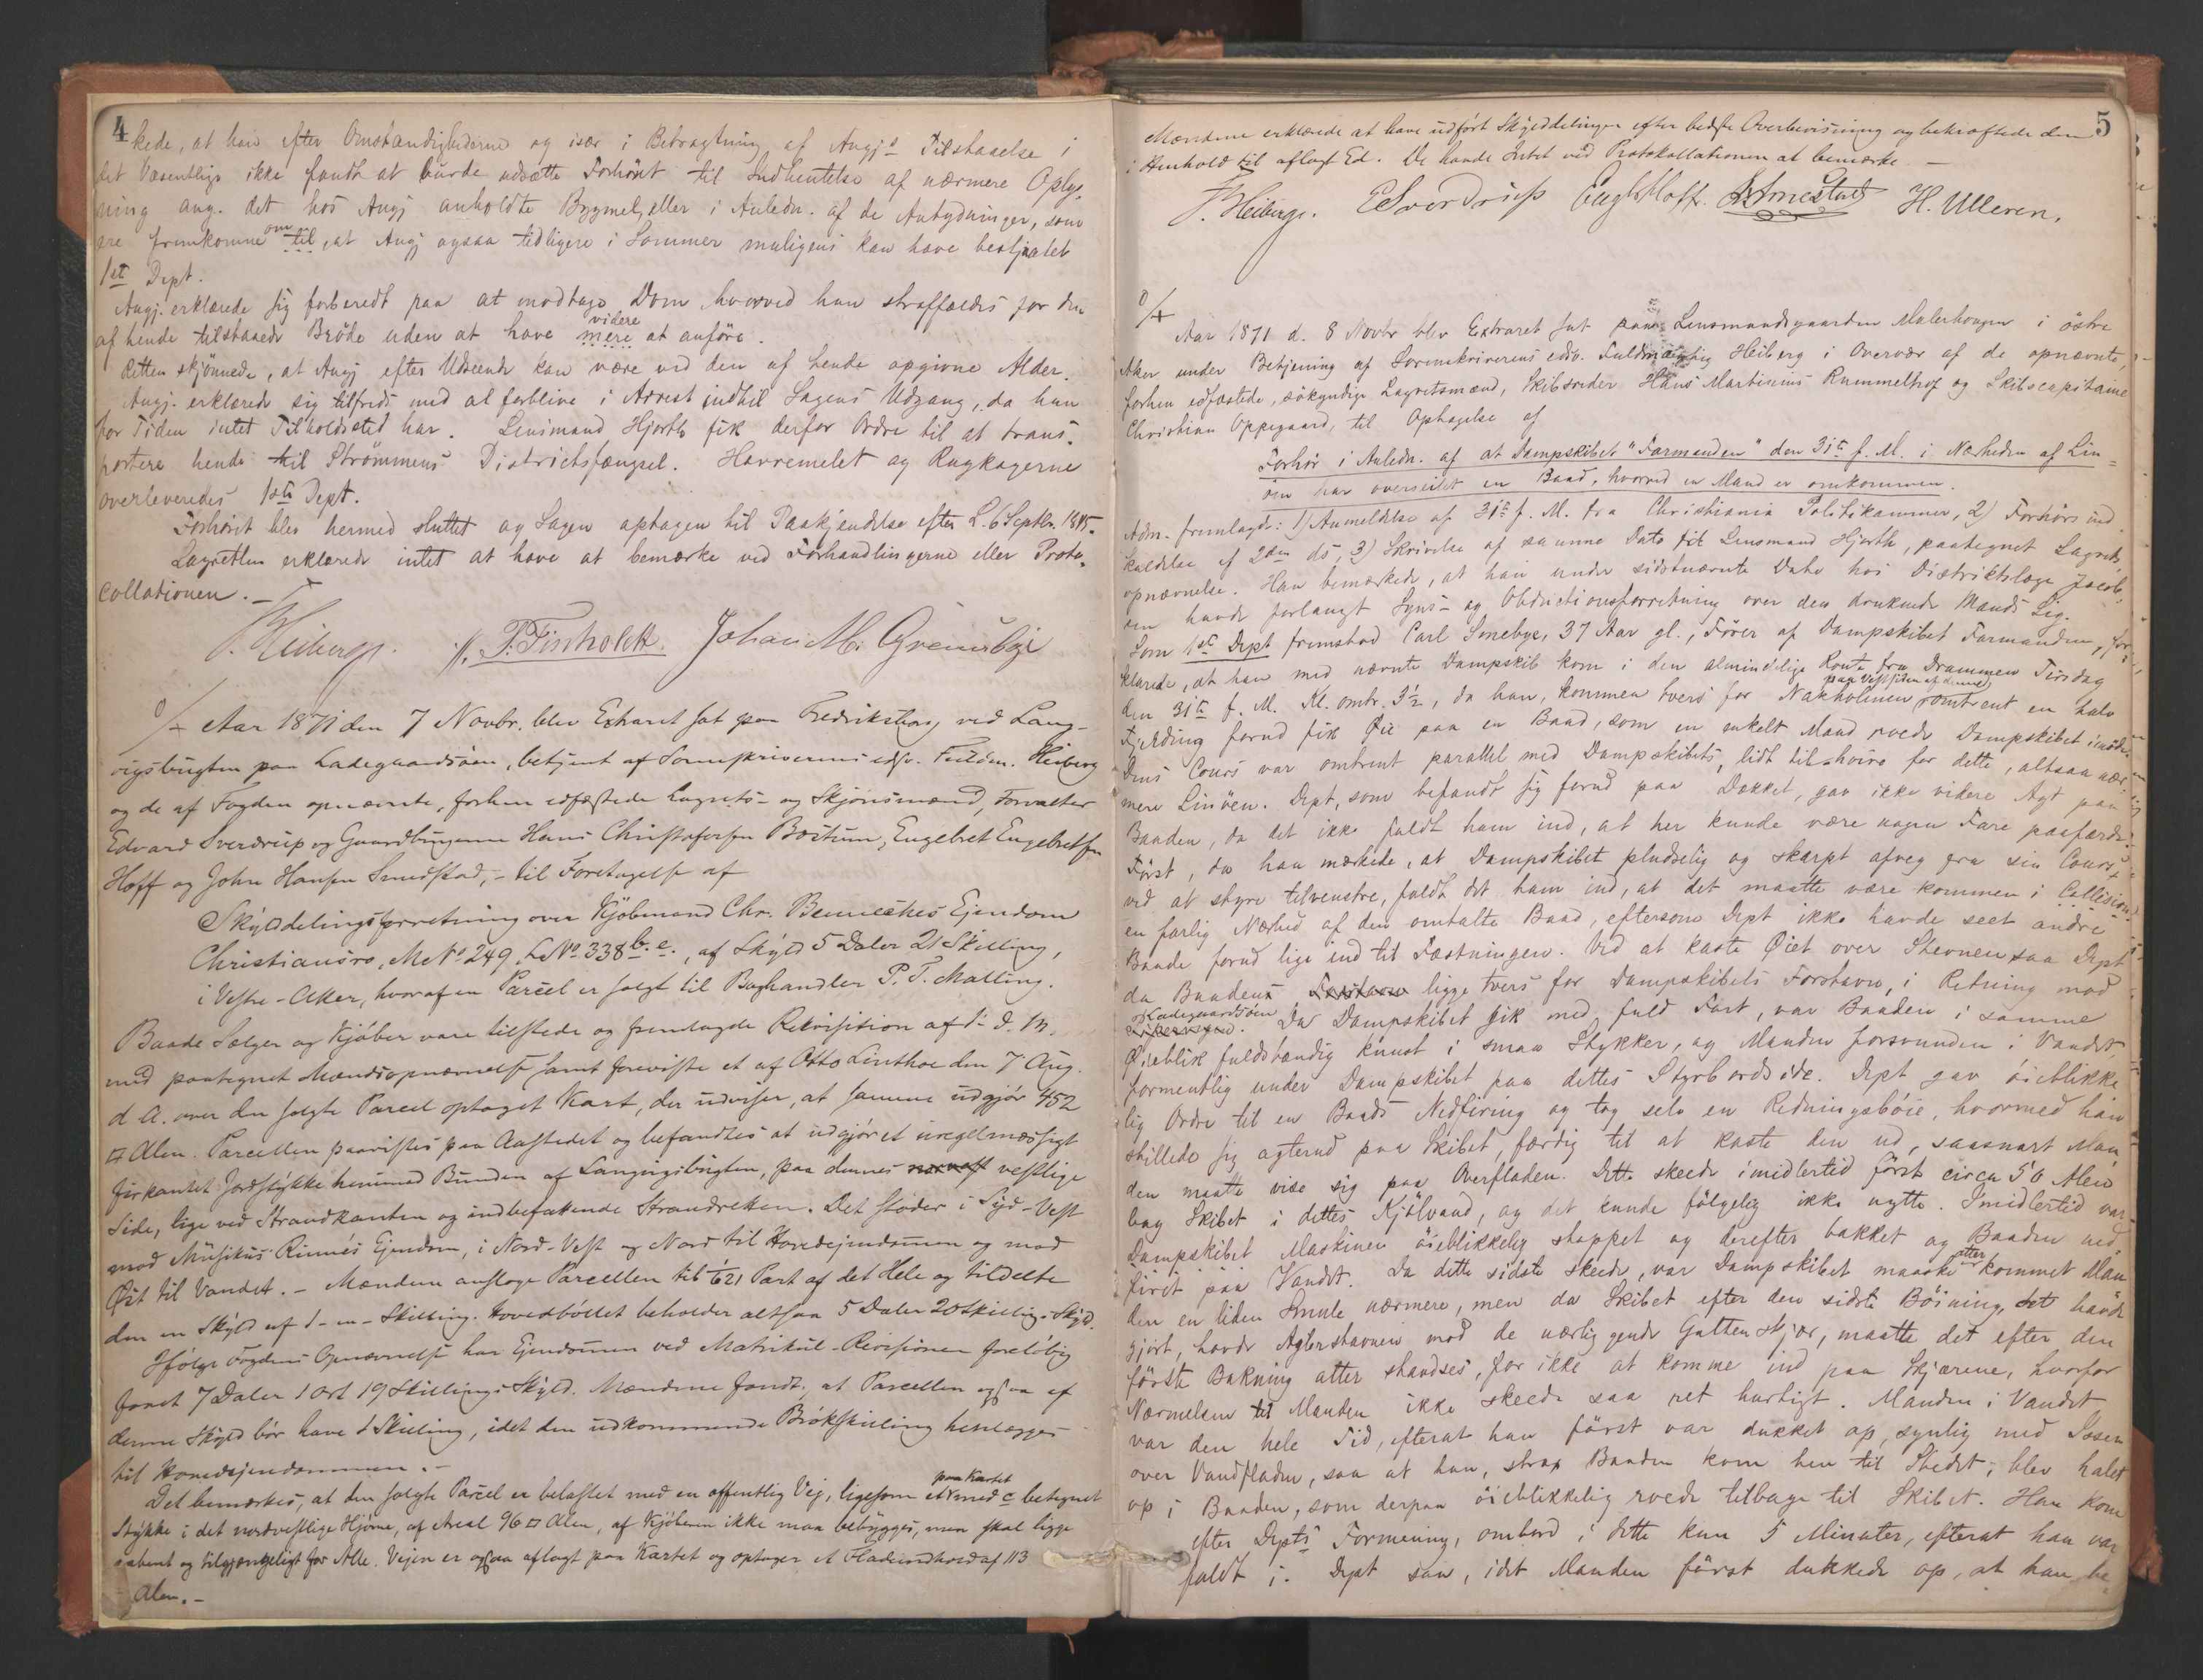 4
kede, at han efter Omstændighederne og især i Betragtning af Angjs Tilstaaelse i
det Væsentlige ikke fandt at burde udsætte Forhöret til Indhentelse af nærmere Oplys-
ning ang. det hos Angj anholdte Bygmel, eller i Anledn. af de Antydninger, som
ere fremkomne om til, at Angj ogsaa tidligere i Sommer muligens kan have bestjaalet
1ste Dept.
Angj. erklærede sig forberedt paa at modtage Dom hvorved hun straffældes for den
af hende tilstaaede Bröde uden at have videre mere at anföre.
Retten skjönnede, at Angj efter Udseende kan være ved den af hende opgivne Alder.
Angj. erklærede sig tilfreds med at forblive i Arrest indtil Sagens Udgang, da hun
for Tiden intet Tilholdssted har. Lensmand Hjorth fik derfor Ordre til at trans-
portere hende til Strömmens Districtsfængsel. Havremelet og Rugkagerne
overleveredes 1ste Dept.
Forhöret blev hermed sluttet og Sagen optagen til Paakjendelse efter L. 6 Septbr. 1845.
Lagretten erklærede intet at have at bemærke ved Forhandlingerne eller Proto-
collationen. –
Heiberg. Johan M. Grennsbye
0/+ Aar 1871 den 7 Novbr. blev Extraret sat paa Fredriksborg ved Lang-
vigsbugten paa Ladegaardsöen, betjent af Sorenskriverens edsv. Fuldm. Heiberg
og de af Fogden opnævnte, forhen edfæstede Lagrets- og Skjönsmænd, Forvalter
Edvard Sverdrup og Gaardbrugerne Hans Christofersen Bestum, Engebret Engebretsen
Hoff og John Hansen Smestad, – til Foretagelse af
Skylddelingsforretning over Kjöbmand Chr. Benneckes Ejendom
Christiansro, M No 249. L No 338 b. e., af Skyld 5 Daler 21 Skilling,
i Vestre-Aker, hvoraf en Parcel er solgt til Boghandler P. T. Malling.
Baade Sælger og Kjöber vare tilstede og fremlagde Rekvisition af 1. d. M.
med paategnet Mændsopnævnelse samt foreviste et af Otto Linthoe den 7 Aug.
d A. over den solgte Parcel optaget Kart, der udviser, at samme udgjör 452
□ Alen. Parcellen paavistes paa Aastedet og befandtes at udgjöre et uregelmæssigt
firkantet Jordstykke henimod Bunden af Langvigsbugten, paa dennes vestlige
Side, lige ved Strandkanten og indbefattende Strandretten. Det stöder i Syd-Vest
mod Musikus Rinnés Ejendom, i Nord-Vest og Nord til Hovedejendommen og mod
Öst til Vandet. – Mændene ansloge Parcellen til 1/621 Part af det Hele og tildelte
den en Skyld af 1 – en – Skilling. Hovedböllet beholder altsaa 5 Daler 20 Skilling i Skyld.
Ifölge Fogdens Opnævnelse har Ejendommen ved Matrikul-Revisionen forelöbig
faaet 7 Daler 1 Ort 19 Skilling i Skyld. Mændene fandt, at Parcellen ogsaa af
denne Skyld bör have 1 Skilling, idet den udkommende Brökskilling henlægges
til Hovedejendommen. –
Det bemærkes, at den solgte Parcel er belastet med en offentlig Vej, ligesom et paa Kartet med c betegnet
Stykke i det nordvestlige Hjörne, af Areal 96 □ Alen, af Kjöberen ikke maa bebygges, men skal ligge
aabent og tilgjængeligt for Alle. Vejen er ogsaa aflagt paa Kartet og optager et Fladeindhold af 113
Alen. –
5
Mændene erklærede at have udfört Skylddelingen efter bedste Overbevisning og bekræftede den
i Henhold til aflagt Ed. De havde Intet ved Protokollationen at bemærke. –
Heiberg. E Sverdrup Engb. Hoff. J. Smestad H. Ulleren.
0/+
Aar 1871 d. 8 Novbr blev Extraret sat paa Lensmandsgaarden Malerhaugen i östre
Aker under Betjening af Sorenskriverens edsv. Fuldmægtig Heiberg i Overvær af de opnævnte,
forhen edfæstede, sökyndige Lagretsmænd, Skibsreder Hans Martinius Rummelhof og Skibscapitaine
Christian Oppegaard, til Optagelse af
Forhör i Anledn. af at Dampskibet "Farmanden" den 31te f. M. i Nærheden af Lin-
öen har overseilet en Baad, hvorved en Mand er omkommen.
Adm. fremlagde: 1) Anmeldelse af 31te f. M. fra Christiania Politikammer, 2) Forhörsind-
kaldelse af 2den ds, 3) Skrivelse af samme Dato til Lensmand Hjorth, paategnet Lagrets-
opnævnelse. Han bemærkede, at han under sidstnævnte Dato hos Distriktslæge Jacob-
sen havde forlangt Syns- og Obductionsforretning over den druknede Mands Lig.
Som 1ste Dept fremstod Carl Smebye, 37 Aar gl., Förer af Dampskibet Farmanden, for-
klarede, at han med nævnte Dampskib kom i den almindelige Route fra Drammen Tirsdag
den 31te f. M. Kl. omtr. 3½, da han, kommen tvers for Nakholmen paa Vestsiden af denne omtrent en halv
Fjerding forud fik Öie paa en Baad, som en enkelt Mand roede Dampskibet imöde.
Dens Cours var omtrent parallel med Dampskibets, lidt tilhöire for dette, altsaa nær-
mere Linöen. Dept, som befandt sig forud paa Dækket, gav ikke videre Agt paa
Baaden, da det ikke faldt ham ind, at her kunde være nogen Fare paafærde.
Först, da han mærkede, at Dampskibet pludselig og skarpt afveg fra sin Cours
ved at styre tilvenstre, faldt det ham ind, at det maatte være kommen i Collision
en farlig Nærhed af den omtalte Baad, eftersom Dept ikke havde seet andre
Baade forud lige ind til Fæstningen. Ved at kaste Öiet over Stevnen saa Dept
da Baadens ligge tvers for Dampskibets Forstavn, i Retning mod
Ladegaardsöen. Da Dampskibet gik med fuld Fart, var Baaden i samme
Öieblik fuldstændig knust i smaa Stykker, og Manden forsvunden i Vandet,
formentlig under Dampskibet paa dettes Styrbordside. Dept gav öieblikke-
lig Ordre til en Baads Nedfiring og tog selv en Redningsböie, hvormed han
stillede sig agterud paa Skibet, færdig til at kaste den ud, saasnart Man-
den maatte vise sig paa Overfladen. Dette skeede imidlertid först circa 50 Alen
bag Skibet i dettes Kjölvand, og det kunde fölgelig ikke nytte. Imidlertid var
Dampskibet Maskinen öieblikkelig stoppet og derefter bakket og Baaden ned-
firet paa Vandet. Da dette sidste skeede, var Dampskibet maaske atter kommet Man-
den en liden Smule nærmere, men da Skibet efter den sidste Böining, det havde
gjort, havde Agterstavnen mod de nærliggende Gattenskjær, maatte det efter den
förste Bakning atter standses, for ikke at komme ind paa Skjærene, hvorfor
Nærmelsen til Manden ikke skeede saa ret hurtigt. Manden i Vandet
var den hele Tid, efterat han först var dukket op, synlig med Issen
over Vandfladen, saa at han, strax Baaden kom hen til Stedet, blev halet
op i Baaden, som derpaa öieblikkelig roede tilbage til Skibet. Han kom
efter Depts Formening, ombord i dette kun 5 Minuter, efterat han var
faldt i. Dept saa, idet Manden först dukkede op, at han be-